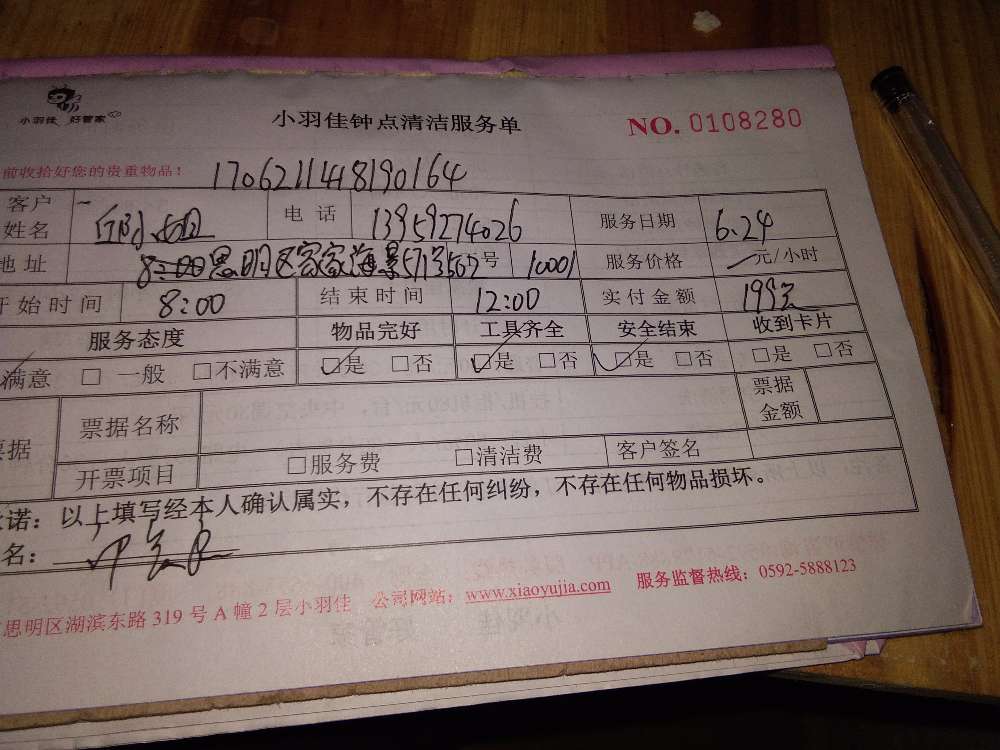 小羽佳 好管家
小羽佳钟点清洁服务单 NO. 0108280
前收拾好您的贵重物品！ 170621148190164
客户姓名 电话 13959274026 服务日期 6.24
地址 8:00 思明区 海景 号 1001 服务价格 元/小时
开始时间 8:00 结束时间 12:00 实付金额
服务态度 物品完好 工具齐全 安全结束 收到卡片
满意 □ 一般 □不满意 □是 □否 □是 □否 □是 □否 □是 □否
票据 票据名称 票据金额
开票项目 □服务费 □清洁费 客户签名
诺：以上填写经本人确认属实，不存在任何纠纷，不存在任何物品损坏。
名：
思明区湖滨东路 319 号 A 幢 2 层小羽佳 公司网站：www.xiaoyujia.com 服务监督热线：0592-5888123